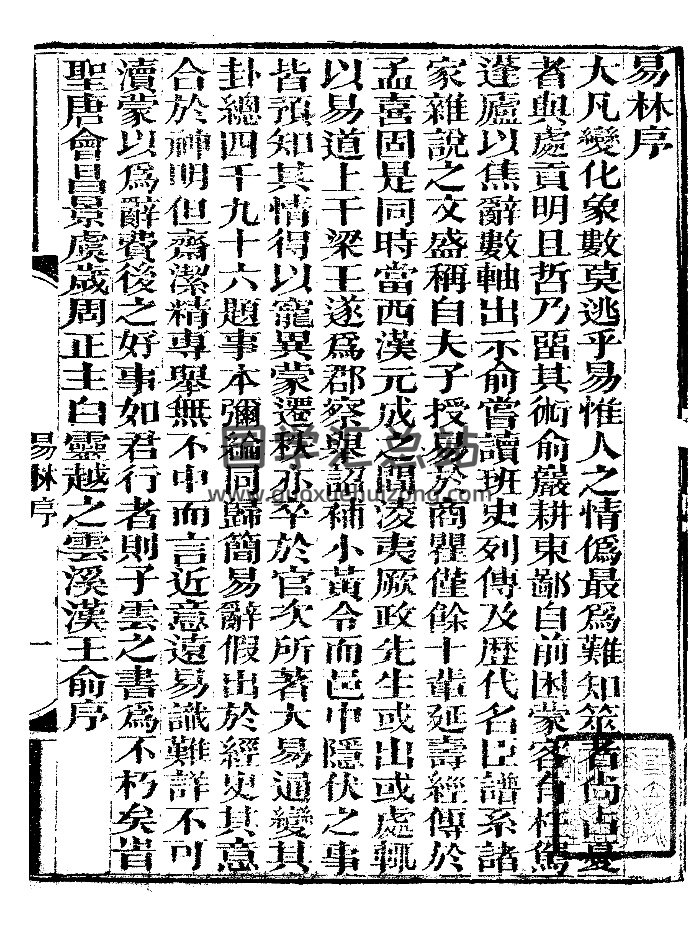 易林序
大凡變化象數莫逃乎易惟人之情僞最爲難知筮者尚占憂
者與處貢明且哲乃留其術俞嚴耕東鄙自前困蒙客有枉駕
蓬廬以焦辭數軸出示俞嘗讀班史列傳及歷代名臣譜系諸
家雜說之文盛稱自夫子授易於商瞿僅餘十輩延壽經傳於
孟喜固是同時當西漢元成之間淩夷厥政先生或出或處輒
以易道上干梁王遂爲郡察舉詔補小黃令而邑中隱伏之事
皆預知其情得以寵異蒙遷秩亦卒於官次所著大易通變其
卦總四千九十六題事本彌綸同歸簡易辭假出於經史其意
合於神明但齋潔精專舉無不中而言近意遠易識難詳不可
瀆蒙以爲辭費後之好事如君行者則子雲之書爲不朽矣旹
聖唐會昌景虞歲周正土白靈越之雲溪漢王俞序
易林序
一
国学汇总站
www.guoxuehuizong.com